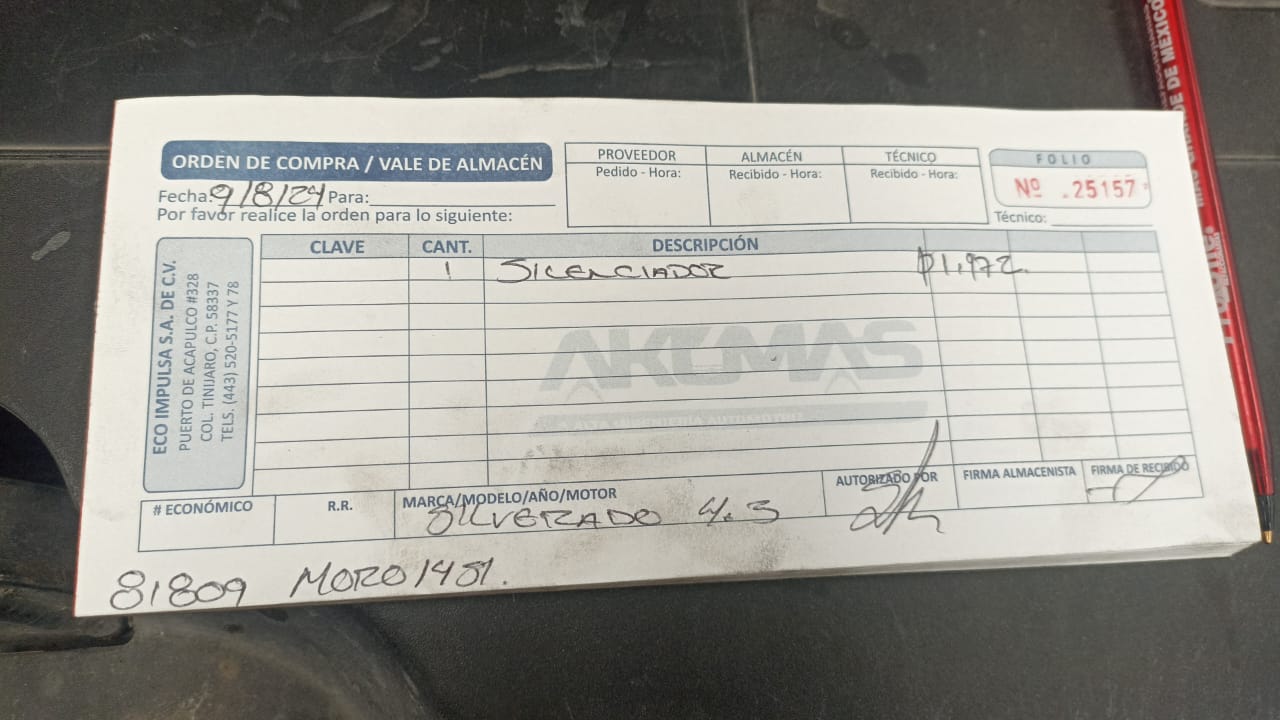 ORDEN DE COMPRA / VALE DE ALMACÉN
Fecha: 9/8/24 Para:
Por favor realice la orden para lo siguiente:
PROVEEDOR
Pedido - Hora:
ALMACÉN
Recibido - Hora:
TÉCNICO
Recibido - Hora:
FOLIO
Nº .25157
Técnico:
ECO IMPULSA S.A. DE C.V.
PUERTO DE ACAPULCO #328
COL. TINIJARO, C.P. 58337
TELS. (443) 520-5177 Y 78
CLAVE CANT. DESCRIPCIÓN
1 SILENCIADOR $1,972.
AKUMAS
# ECONÓMICO
R.R.
MARCA/MODELO/AÑO/MOTOR
SILVERADO 4.3
AUTORIZADO POR
FIRMA ALMACENISTA
FIRMA DE RECIBIDO
81809 MORO1451.
DE MEXICO